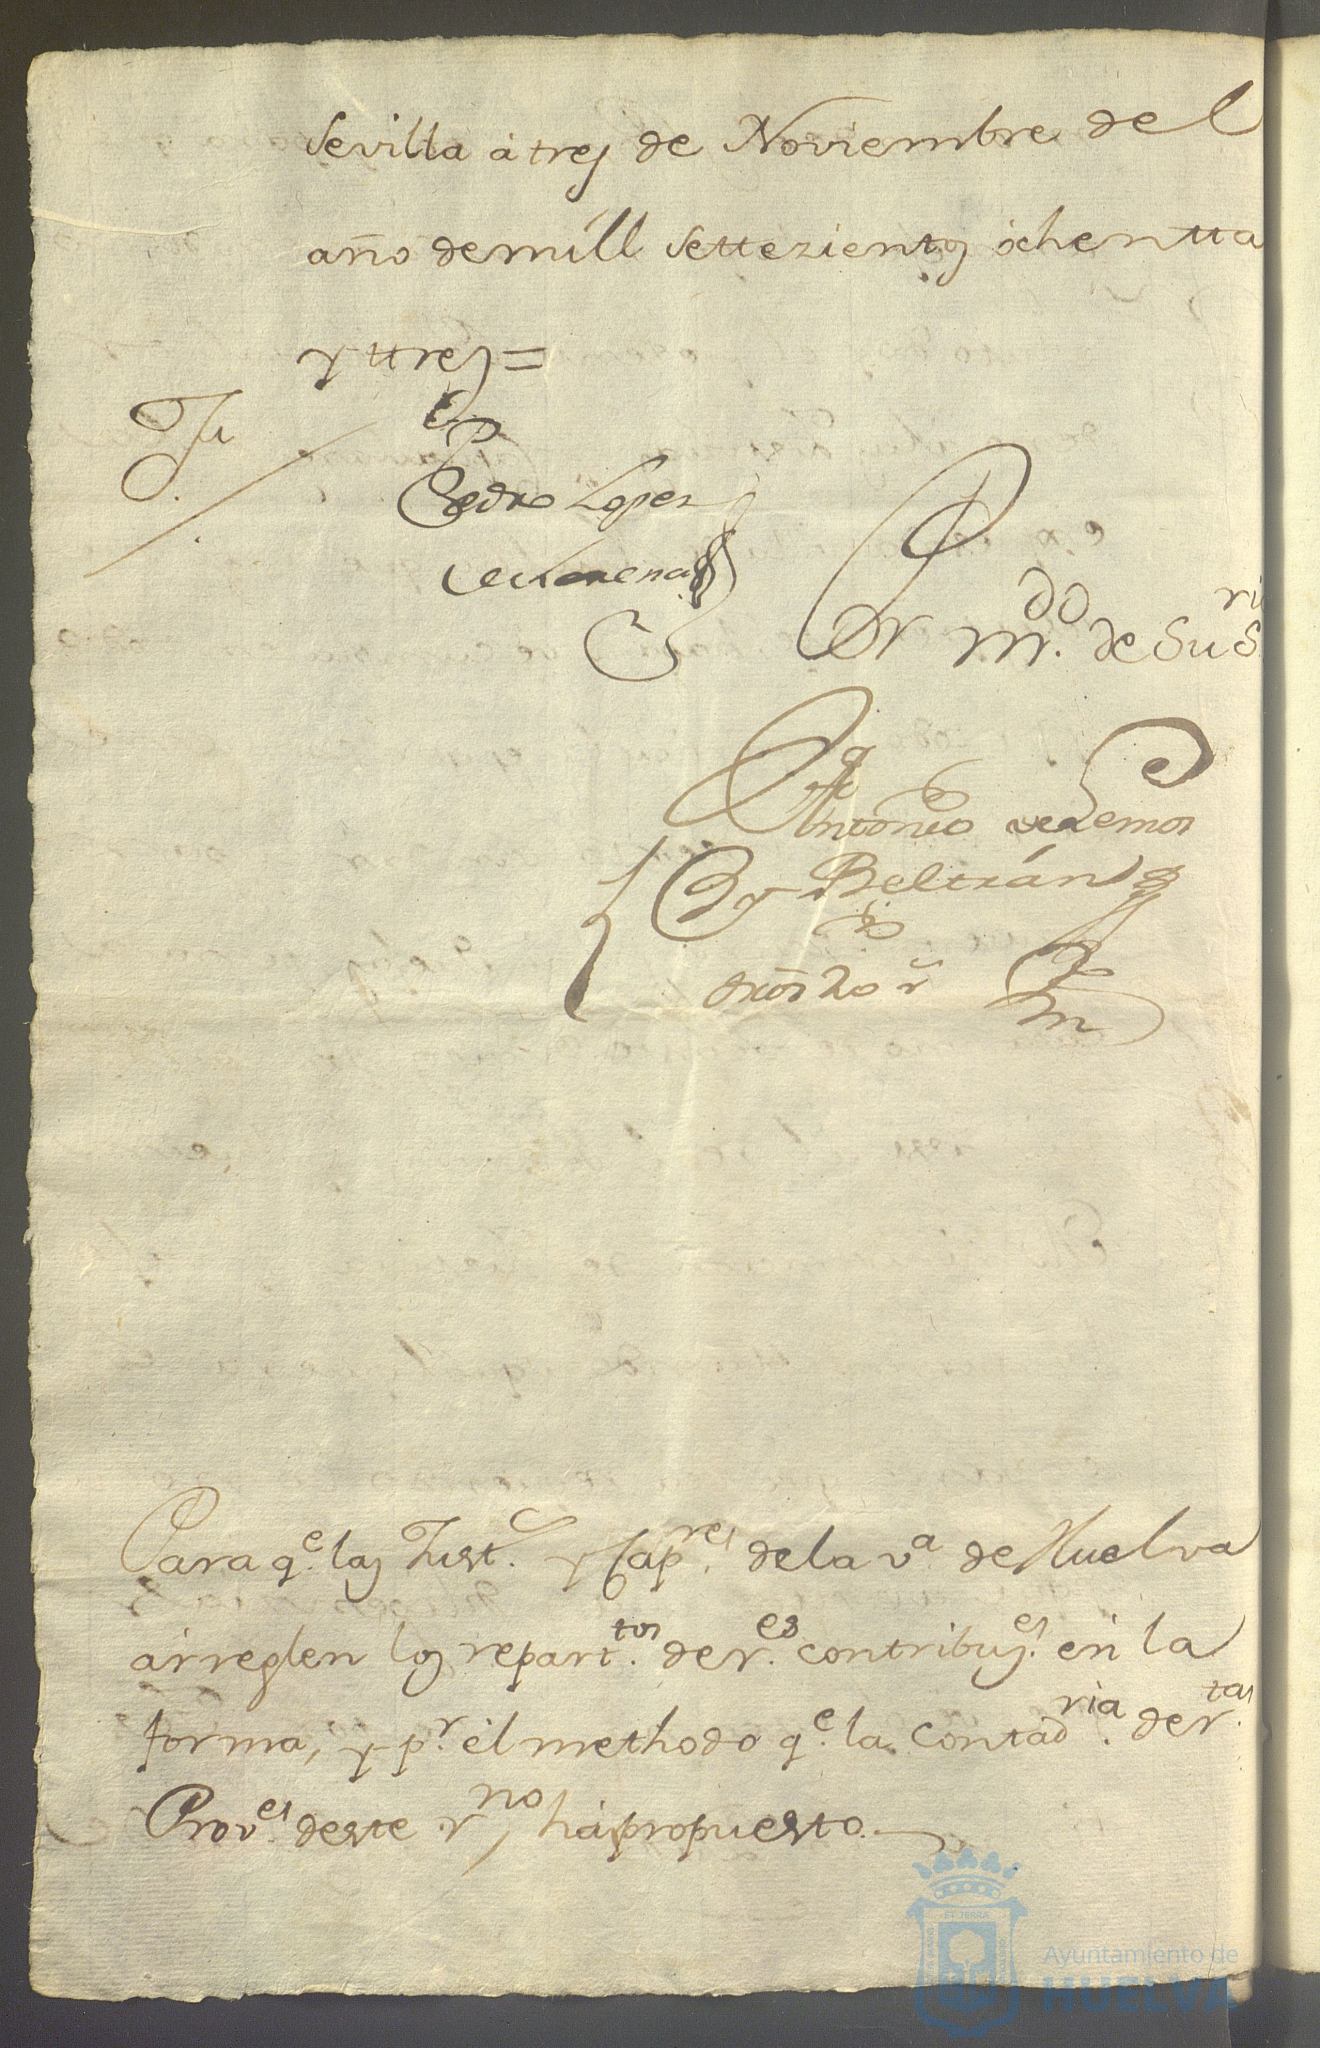 Sevilla á tres de Noviembre del
año de mill settezientos óchentta
y ttres=
Pedro Lopez
de Lorena
Pr M.do de Su S.ria
Antonio de Lemos
y Beltrán
Para q.e las Just.s y Cap.res de la v.a de Huelva
árreglen los repart.tos de r.es contribuz.es en la
forma, y p.r el methodo q.e la Contad.ria de r.tas
Prov.es deste r.no há propuesto.
Ayuntamiento de
HUELVA